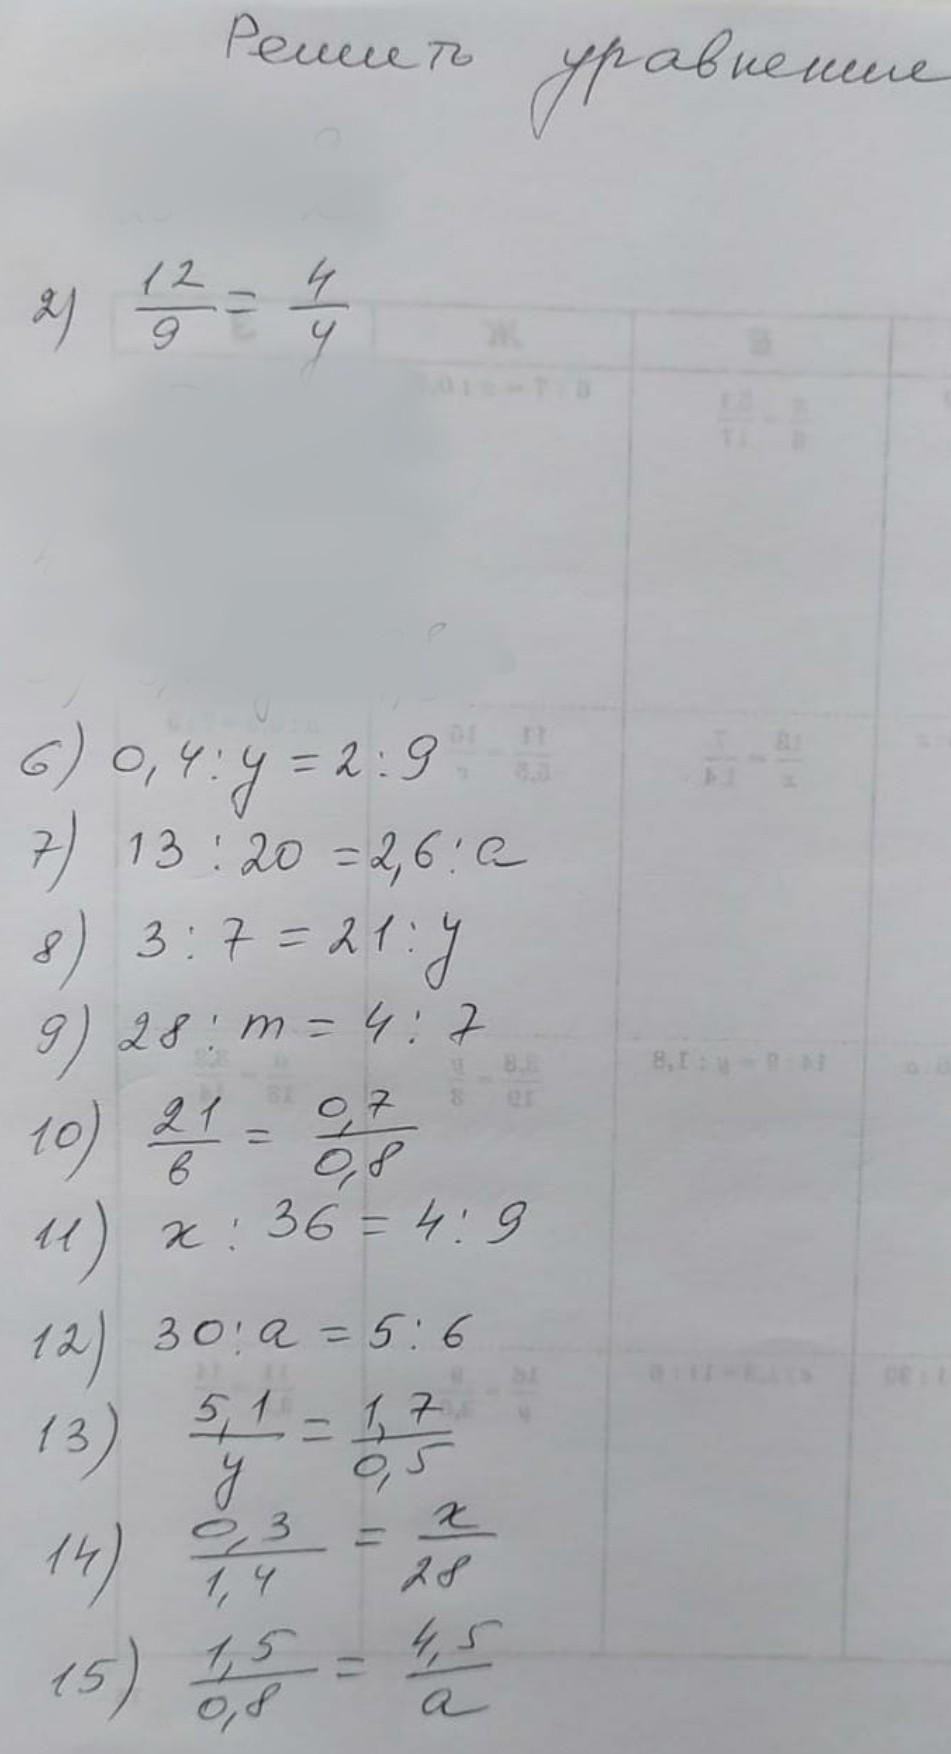 Решить уравнение
2) 12/9 = 4/y
6) 0,4 : y = 2 : 9
7) 13 : 20 = 2,6 : a
8) 3 : 7 = 21 : y
9) 28 : m = 4 : 7
10) 21/в = 0,7/0,8
11) x : 36 = 4 : 9
12) 30 : a = 5 : 6
13) 5,1/y = 1,7/0,5
14) 0,3/1,4 = x/28
15) 1,5/0,8 = 4,5/a